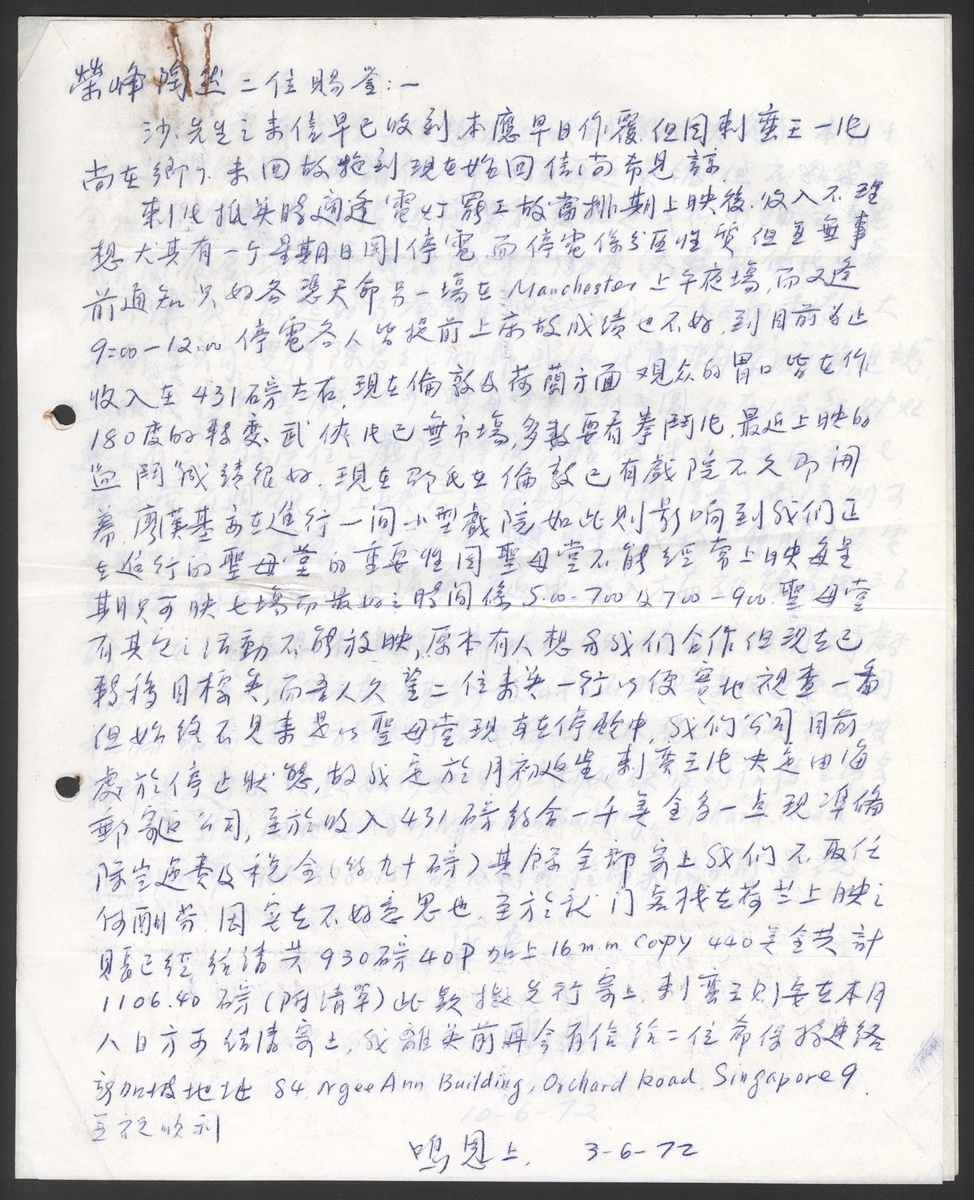 榮峰陶然二位賜鉴:—
沙先生之来信早已收到本應早日作覆但因刺蛮王一片
尚在鄉下未回故拖到現在始回信尚希見諒
刺片抵英時適逢電灯罷工故當排期上映後收入不理
想尤其有一个星期日刚停電而停電係分区性質但並無事
前通知只好各憑天命另一場在Manchester上午夜場,而又逢
9:00-12:00停電各人皆提前上床故成绩也不好,到目前为止
收入在431磅左右,現在倫敦及荷蘭方面观众的胃口皆在作
180度的轉变,武俠片已無市場,多數要看拳鬥片,最近上映的
鬥成績很好.現在邵氏在倫敦已有戲院不久即開
幕,廖漢基亦在進行一间小型戲院如此則影响到我们正
在進行的聖母堂的重要性因聖母堂不能經常上映每星
期只可映七場而最好之時间係5:00-7:00及7:00-9:00.聖母堂
有其它之活動不能放映,原本有人想与我们合作但現在已
轉移目標矣,而吾人久望二位来英一行以便實地視查一番
但始終不見来是以聖母堂現在停中,我们公司目前
處於停止狀態,故我定於月初返星,刺蛮王片決定由海
郵寄返公司,至於收入431磅約合一千美金多一点現準備
除空運費及税金(約九十磅)其餘全部寄上我们不取任
何酬劳,因实在不好意思也.至於龍门客栈在荷兰上映之
賬已經结清共930磅40P加上16m.m Copy 440美金共計
1106.40磅(附清單)此款擬先行寄上,刺蛮王則要在本月
八日方可结清寄上,我離英前再会有信给二位希保持連络
新加坡地址 84, Ngee Ann Building, Orchard Road, Singapore 9.
並祝順利
鳴恩上. 3-6-72